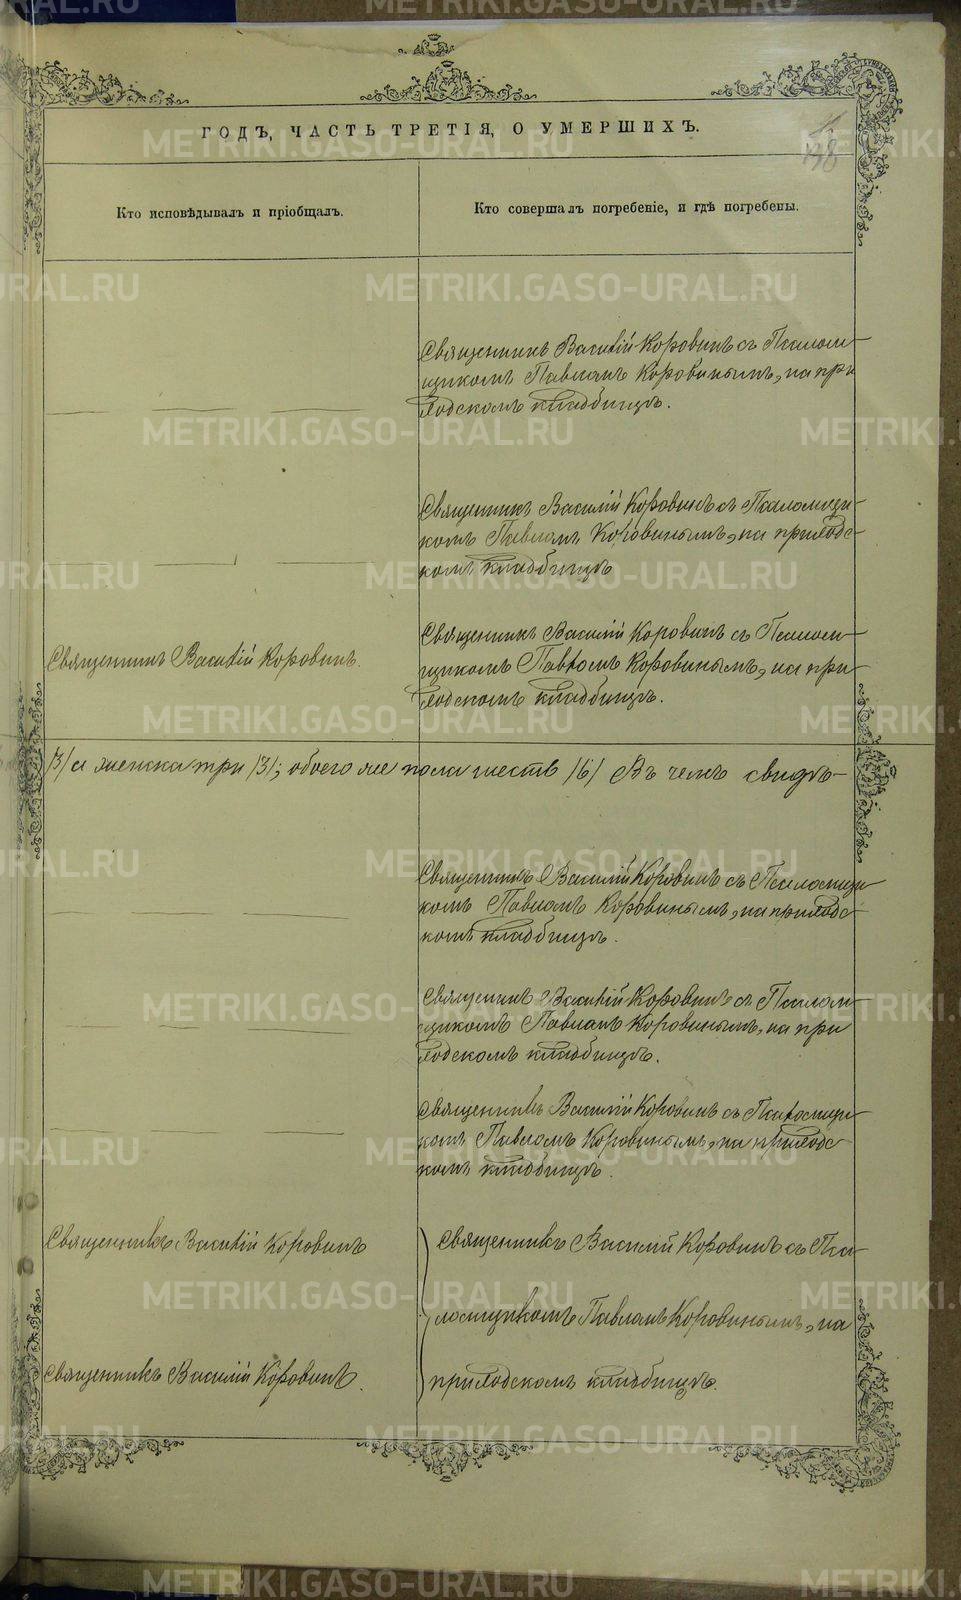 ГОДЪ, ЧАСТЬ ТРЕТІЯ, О УМЕРШИХЪ.
138
Кто исповѣдывалъ и пріобщалъ.
Кто совершалъ погребеніе, и гдѣ погребены.
Священникъ Василій Коровинъ съ Псалом-
щикомъ Павломъ Коровинымъ, на при
ходскомъ кладбищѣ.
Священникъ Василій Коровинъ съ Псаломщи-
комъ Павломъ Коровинымъ, на приходс-
комъ кладбищѣ
Священникъ Василій Коровинъ.
Священникъ Василій Коровинъ съ Псалом-
щикомъ Павломъ Коровинымъ, на при
ходскомъ кладбищѣ.
/3/ а женска три /3/; обоего же пола шесть /6/ Въ чемъ свидѣ-
Священникъ Василій Коровинъ съ Псаломщи-
комъ Павломъ Коровинымъ, на приходс-
комъ кладбищѣ.
Священникъ Василій Коровинъ съ Псалом-
щикомъ Павломъ Коровинымъ, на при
ходскомъ кладбищѣ.
Священникъ Василій Коровинъ съ Псаломщи-
комъ Павломъ Коровинымъ, на приходс-
комъ кладбищѣ.
Священникъ Василій Коровинъ
Священникъ Василій Коровинъ съ Пса-
ломщикомъ Павломъ Коровинымъ, на
Священникъ Василій Коровинъ.
приходскомъ кладбищѣ.
METRIKI.GASO-URAL.RU